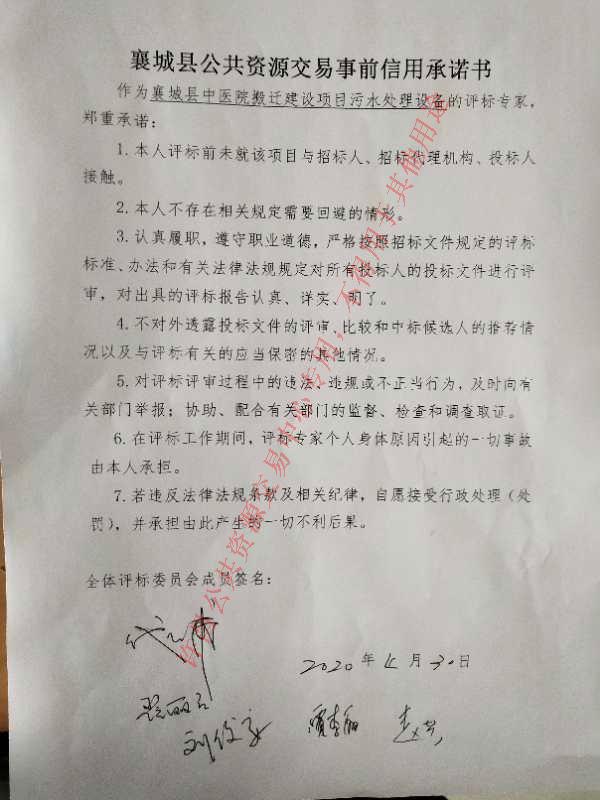 襄城县公共资源交易事前信用承诺书
作为襄城县中医院搬迁建设项目污水处理设备的评标专家，
郑重承诺：
1.本人评标前未就该项目与招标人、招标代理机构、投标人
接触。
2.本人不存在相关规定需要回避的情形。
3.认真履职，遵守职业道德，严格按照招标文件规定的评标
标准、办法和有关法律法规规定对所有投标人的投标文件进行评
审，对出具的评标报告认真、详实、明了。
4.不对外透露投标文件的评审、比较和中标候选人的推荐情
况以及与评标有关的应当保密的其他情况。
5.对评标评审过程中的违法、违规或不正当行为，及时向有
关部门举报；协助、配合有关部门的监督、检查和调查取证。
6.在评标工作期间，评标专家个人身体原因引起的一切事故
由本人承担。
7.若违反法律法规条款及相关纪律，自愿接受行政处理（处
罚），并承担由此产生的一切不利后果。
全体评标委员会成员签名：
2020年4月30日
许昌公共资源交易中心专用，不得用于其他用途